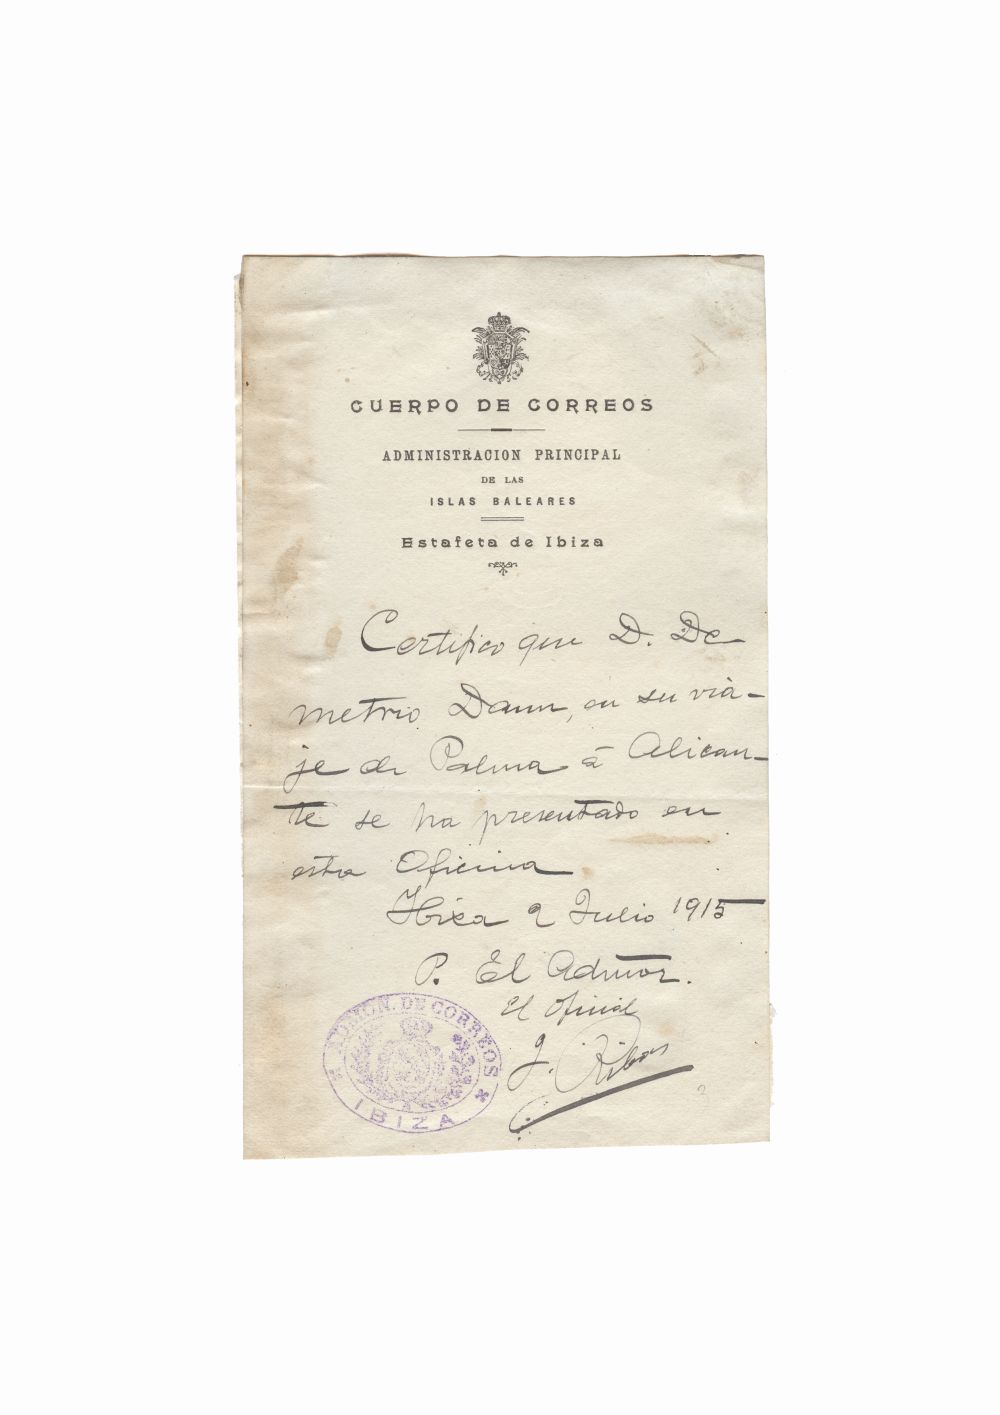 CUERPO DE CORREOS
ADMINISTRACION PRINCIPAL
DE LAS
ISLAS BALEARES
Estafeta de Ibiza
Certifico que D. De
metrio Daun, en su via-
je de Palma á Alican-
te se ha presentado en
esta Oficina
Ibiza 2 Julio 1915
P. El Admor.
El Oficial
J. Ribas
ADMÓN. DE CORREOS
IBIZA